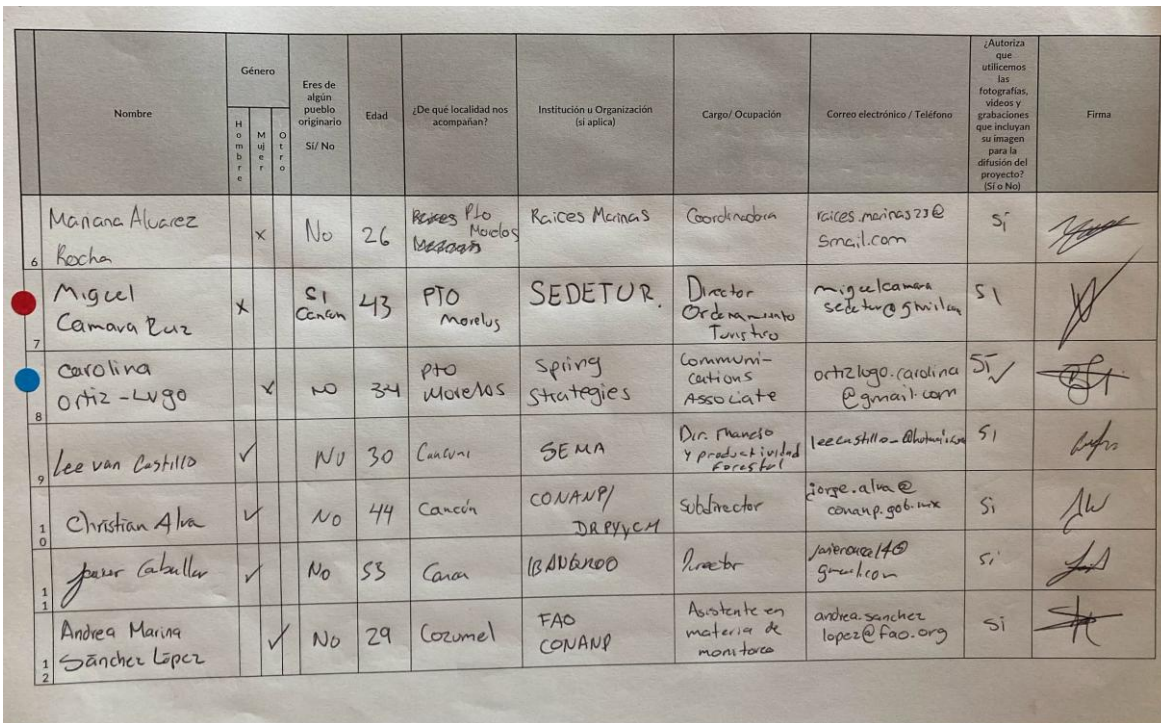 Nombre
Género
Hombre
Mujer
Otro
Eres de
algún
pueblo
originario
Sí/ No
Edad
¿De qué localidad nos
acompañan?
Institución u Organización
(si aplica)
Cargo/ Ocupación
Correo electrónico / Teléfono
¿Autoriza
que
utilicemos
las
fotografías,
videos y
grabaciones
que incluyan
su imagen
para la
difusión del
proyecto?
(Sí o No)
Firma
6
Mariana Alvarez
Rocha
x
No
26
Raices Pto
Morelos
Raices Marinas
Coordinadora
raices.marinas23@
gmail.com
Sí
7
Miguel
Camara Ruz
x
SI
Cancun
43
PTO
Morelos
SEDETUR.
Director
Ordenamiento
Turistico
miguelcamara
SI
8
carolina
ortiz-Lugo
x
NO
34
pto
Morelos
Spring
Strategies
Communi-
cations
Associate
ortizlugo.carolina
@gmail.com
Sí ✓
9
Lee van Castillo
✓
No
30
Cancun
SEMA
Dir. Manejo
y productividad
Forestal
SI
10
Christian Alva
✓
No
44
Cancún
CONANP/
DRPYyCM
Subdirector
jorge.alva@
conanp.gob.mx
Si
11
✓
No
53
Director
gmail.com
Si
12
Andrea Marina
Sánchez López
✓
No
29
Cozumel
FAO
CONANP
Asistente en
materia de
monitoreo
andrea.sanchez
lopez@fao.org
Si